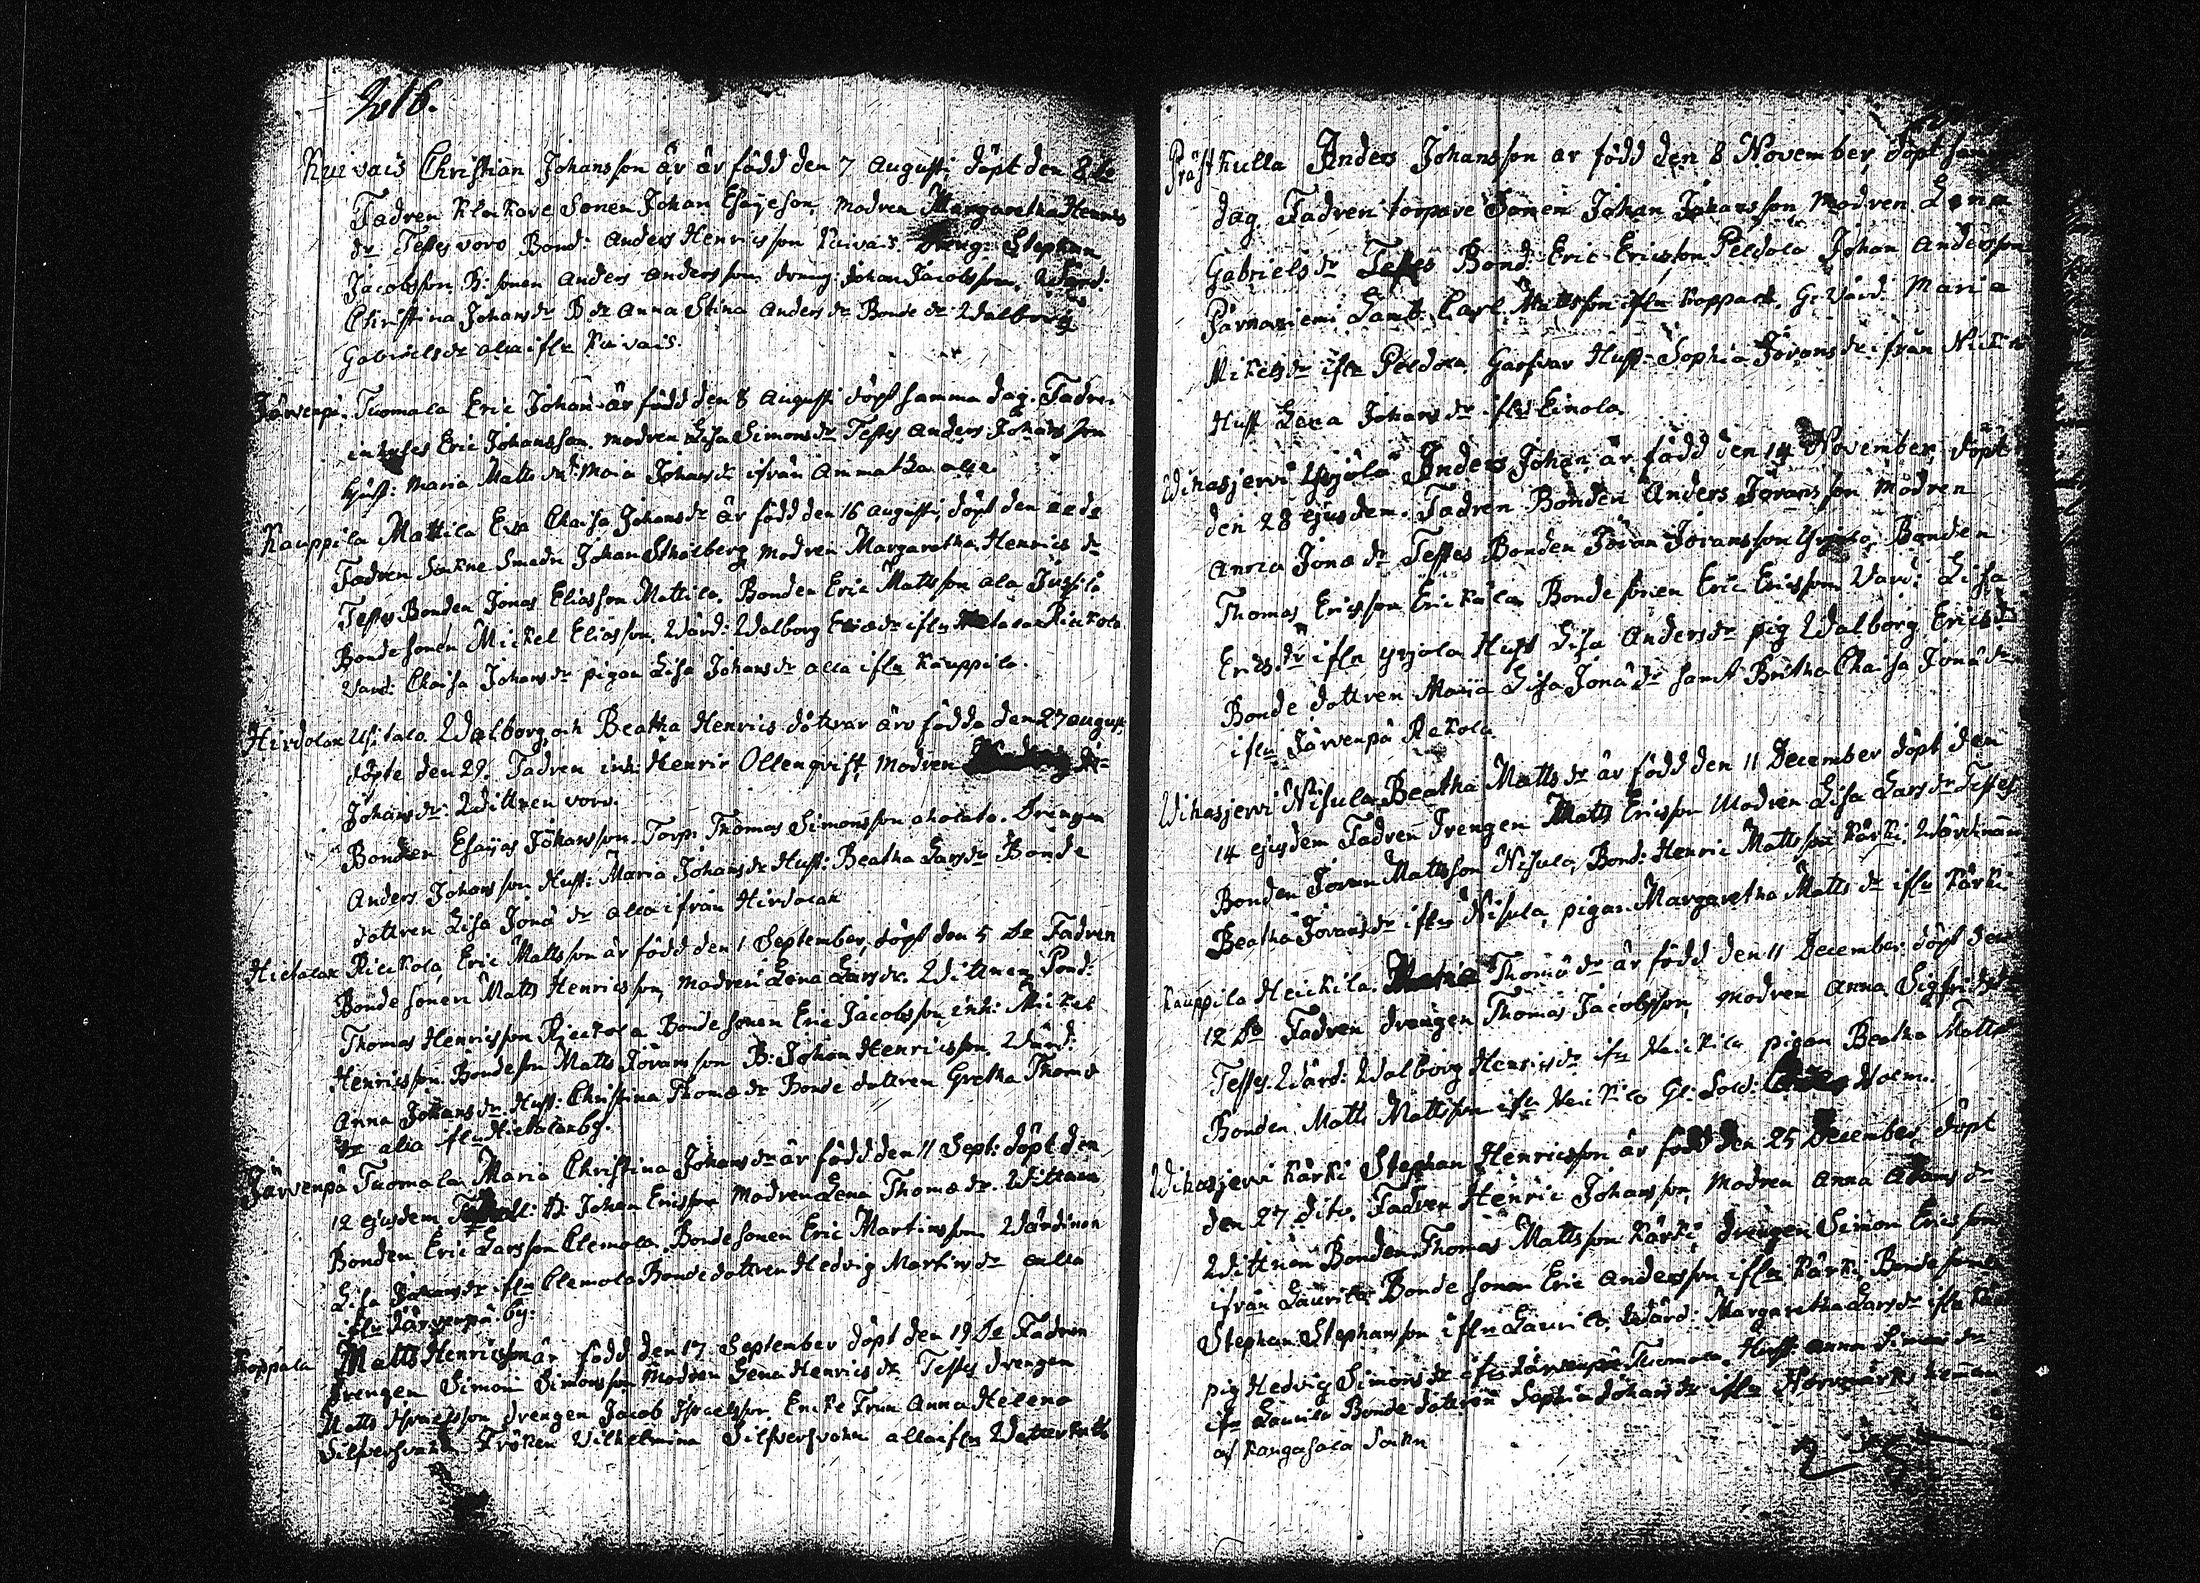 216.
Kuivais Christian Johansson är är född den 7 Augusti döpt den 8 de
Fadren Klockare Sonen Johan Esajeson, modren Margaretha Henrics
dr Testes voro Bond: Anders Henricsson Kuivais dreng: Stephan
Jacobsson, B: sonen Anders Andersson, dreng: Johan Jacobsson, Wärd:
Christina Johansdr B dr Anna Stina Anders dr Bonde dr Walborg
Gabrielsdr alla ifrn Kuivais.
Järvenpä Tuomala Eric Johan är född den 8 Augusti döpt samma dag. Fadren
inhyses Eric Johansson. modren Lisa Simonsdr Testes Anders Johansson
Hust: Maria Matts dr Maia Johansdr ifrån Anmatka alla
Kauppila Mattila Eva Chaisa Johansdr är född den 16 Augusti, döpt den
Fadren Sockne Smedn Johan Stholberg, modren Margaretha Henrics dr
Testes Bonden Jonas Eliasson Mattila. Bonden Eric Mattsson ala Jussila
Bonde sonen Mickel Eliasson, Wärd: Walborg Ericsdr ifrn Rickola
Vard: Chaisa Johansdr pigan Lisa Johansdr alla ifrn Kauppila.
Hirdolax Usitalo Walborg och Beatha Henrics döttrar äro födda den 27 August
döpte den 29. Fadren inh: Henric Ollenqvist, Modren
Johansdr. Wittnen voro.
Bonden Esaijas Johansson. Torp: Thomas Simonsson aholato. Drengen
Anders Johansson Hust: Maria Johansdr Hust: Beatha Larsdr Bonde
dottren Lisa Jonä dr alla ifrån Hirdolax
Hietalax Rieckola, Eric Mattsson är född den 1 September, döpt den 5 de Fadren
Bonde sonen Matts Henricsson, modren Lena Larsdr. Wittnen Bond:
Thomas Henricsson Rieckola Bonde sonen Eric Jacobsson, inh: Mickel
Henricsson. Bondeson Matts Jöransson B: Johan Henricsson. Wärd:
Anna Johansdr. Hust: Christina Thomædr Bonde dottren Gretha Thomæ
dr alla ifrn Hietalax by.
Järvenpä Tuomala, Maria Christina Johansdr är född den 11 Sept: döpt den
12 ejusdem Johan Ericsson Modren Lena Thomædr. Wittnen
Bonden Eric Larsson Clemola. Bonde sonen Eric Martinsson Wärdinan
Lisa Johansdr ifrn Clemola Bonde dottren Hedvig Martinsdr alla
ifrn Järvenpä by.
Koppala Matts Henricsson är född den 17 September döpt den 19 de Fadren
Drengen Simon Simonsson Modren Lena Henricsdr. Testes Drengen
Matts Israelsson drengen Jacob Israelsson Encke Frun Anna Helena
Silfversvahn Fröken Vilhelmina Silfversvahn alla ifrn Wetterkulla
Prästkulla Anders Johansson är född den 8 November, döpt samma
dag. Fadren torpare Sonen Johan Johansson Modren Lena
Gabrielsdr Testes Bond: Eric Ericsson Peldola Johan Andersson
Pärnaniemi Lamb: Carl Mattsson ifrn Koppala. G: Värd: Maria
Mickelsdr ifrn Peldola Garfvar Hust: Sophia Jöransdr ifrån
Hust Lena Johansdr ifrn Einola.
Wihasjervi Yrjölä Anders Johan är född den 14 November, döpt
den 28 ejusdem. Fadren Bonden Anders Jöransson Modren
Anna Jonædr Testes Bonden Jöran Jöransson Yrjölä, Bonden
Thomas Ericsson Erickäla Bonde sonen Eric Ericsson, Vard: Lisa
Erics dr ifrn Yrjola Hust Lisa Andersdr pig Walborg Erics dr
Bonde dottren Maria Lisa Jonä dr samt Britha Chaisa Jonä dr
ifrn Järvenpä Rekola.
Wihasjervi Nisula Beatha Matts dr är född den 11 December döpt den
14 ejusdem Fadren Drengen Matts Ericsson Modren Lisa Lars dr Testes
Bonden Jöran Mattsson Nisula, Bond: Henric Mattsson Kärki, Wärdinan
Beatha Jöransdr ifrn Nisula, pigan Margaretha Matts dr ifrn Kärki
Kauppila Heickila. Maria Thomä dr är född den 11 December döpt den
12 do Fadren drengen Thomas Jacobsson, modren Anna Sigfrids dr
Testes. Wärd: Walborg Henricsdr ifrn Heickila pigan Beatha Matts
Bonden Matts Mattsson ifrn Heickila Gl: Sold: Holm.
Wihasjervi Kärki Stephan Henricsson är född den 25 December, döpt
den 27 dito. Fadren Henric Johansson, Modren Anna Adams dr
Wittnen Bonden Thomas Mattsson Kärki drengen Simon Ericsson
ifrån Laurila Bonde sonen Eric Andersson ifrn Kärki, Bonde sonen
Stephan Stephansson ifrn Laurila, Wärd: Margaretha Larsdr ifrn
pig Hedvig Simonsdr ifrn Järvenpä Tuomola, Hust Anna Simons dr
ifrn Laurila Bonde dottren Sophia Johansdr ifrn
af Kangasala Sockn